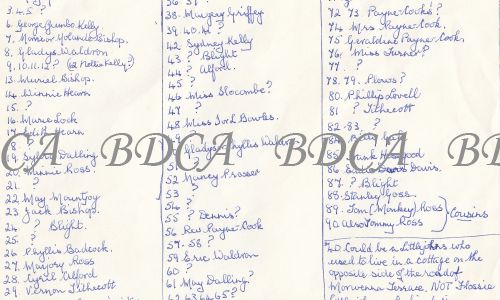 3.4.5 ?
6. George Jumbo Kelly.
7. Monsoir Yolande Bishop.
8. Gladys Waldron
9. 10. 11. 12 ? (12 Nellie Kelly?)
13. Muriel Bishop.
14. Winnie Hearn
15. ?
16. Marie Lock
17.
18. ?
19. Sylvia Dalling
20. Minnie
21. ?
22. May Mountjoy
23. Jack Bishop.
24. ? Blight.
25. ?
26. Phyllis Badcock.
27. Marjory Ross
28. Cyril Alford
29. Vernon Tithecott
38. Margery Griffey
39. 40. 41. ?
42. Sydney Kelly
43. ? Blight
44. ? Alford.
45. ?
46. Miss Slocombe?
47 ?
48. Miss Bowles.
49. ?
Gladys Phyllis Waldron
51.
52 Muncy Prosser
53 ?
54. ?
55 ? Dennis?
56 Rev Payne Cook
57. 58 ?
59 Eric Waldron
60 ?
61 May Dalling?
62 63 64 65 ?
72 73. Payne Cooks?
74. Mrs Payne. Cook.
75 Geraldine Payne. Cook.
76. Miss Turner?
77. ?
78. 79. Plows?
80. Phillip Lovell
81. ? Tithecott
82. 83. ?
84.
85. Frank Hosgood
86. Davis.
87. ? Blight
88. Stanley Goss.
89. Tom (Monkey) Ross
90. Tommy Ross
Cousins
40 Could be a Littlejohns who
used to live in a cottage on the
opposite side of the road of
Morwenna Terrace, NOT Flossie
BDCA BDCA BDCA